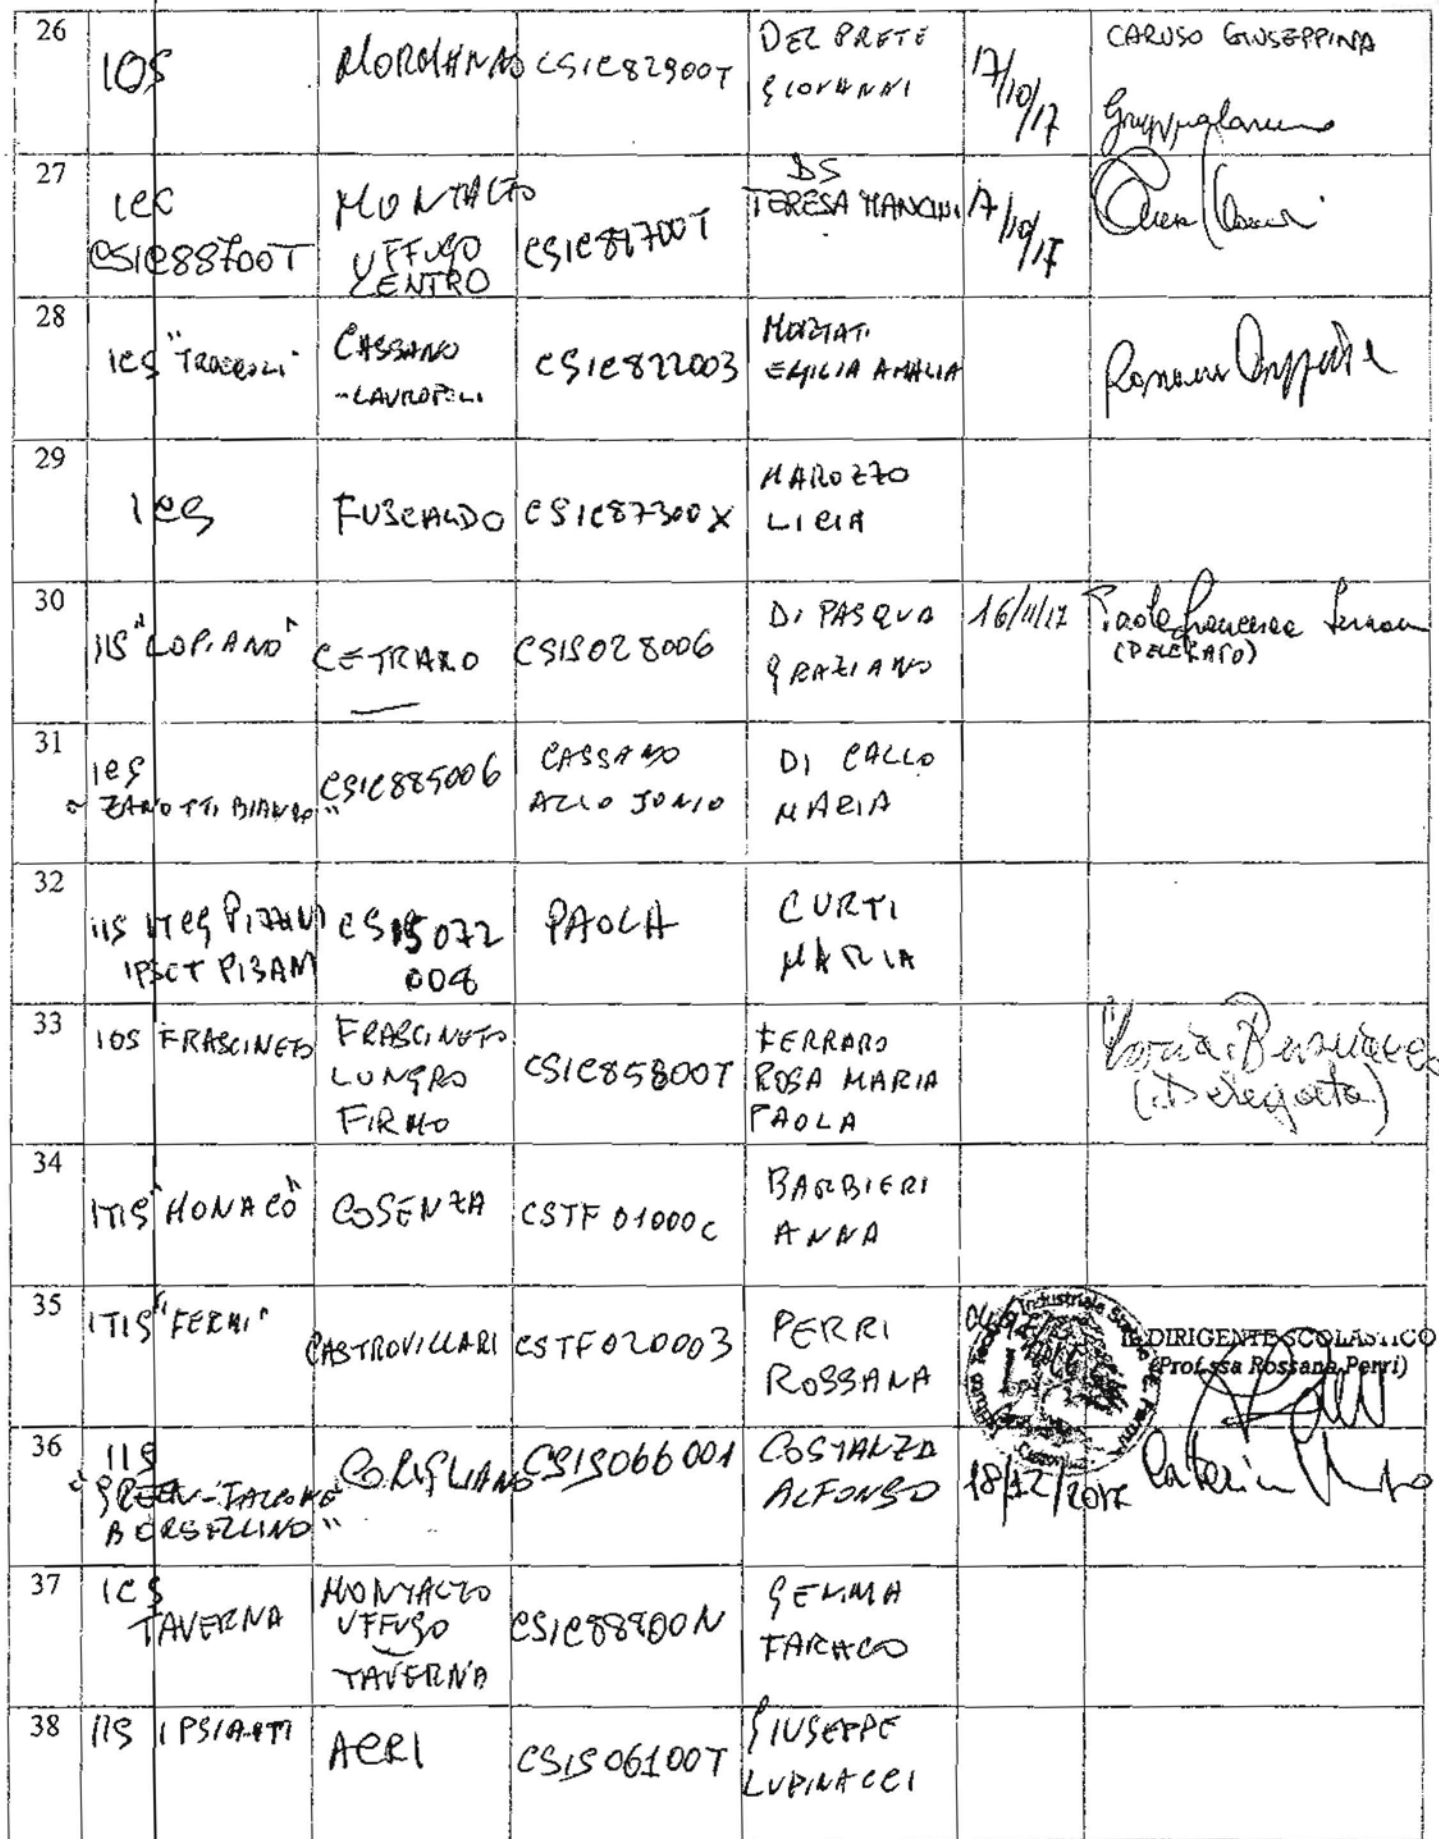 26
IOS
MORMANNO
CSIC82900T
DEL PRETE
GIOVANNI
17/10/17
CARUSO GIUSEPPINA
27
ICS
CSIC88700T
MONTALTO
UFFUGO
CENTRO
CSIC88700T
DS
TERESA MANCINI
17/10/17
28
ICS "TROCCOLI"
CASSANO
-LAUROPOLI
CSIC822003
MORTATI
EMILIA AMALIA
29
ICS
FUSCALDO
CSIC87300X
MAROZZO
LICIA
30
IIS "LOPIANO"
CETRARO
CSIS028006
DI PASQUA
GRAZIANO
16/11/17
(DELEGATO)
31
ICS
"ZANOTTI BIANCO"
CSIC885006
CASSANO
ALLO JONIO
DI CALLO
MARIA
32
IIS ITCG PIZZINI
IPSCT PISANI
CSIS072
008
PAOLA
CURTI
MARIA
33
IOS FRASCINETO
FRASCINETO
LUNGRO
FIRMO
CSIC85800T
FERRARO
ROSA MARIA
PAOLA
(Delegata)
34
ITIS "MONACO"
COSENZA
CSTF01000C
BARBIERI
ANNA
35
ITIS "FERMI"
CASTROVILLARI
CSTF020003
PERRI
ROSSANA
Industriale
IL DIRIGENTE SCOLASTICO
(Prof.ssa Rossana Perri)
36
IIS
"GREEN-FALCONE
BORSELLINO"
CORIGLIANO
CSIS066001
COSTANZA
ALFONSO
18/12/2017
37
ICS
TAVERNA
MONTALTO
UFFUGO
TAVERNA
CSIC88800N
GEMMA
FARACO
38
IIS IPSIA-ITI
ACRI
CSIS06100T
GIUSEPPE
LUPINACCI